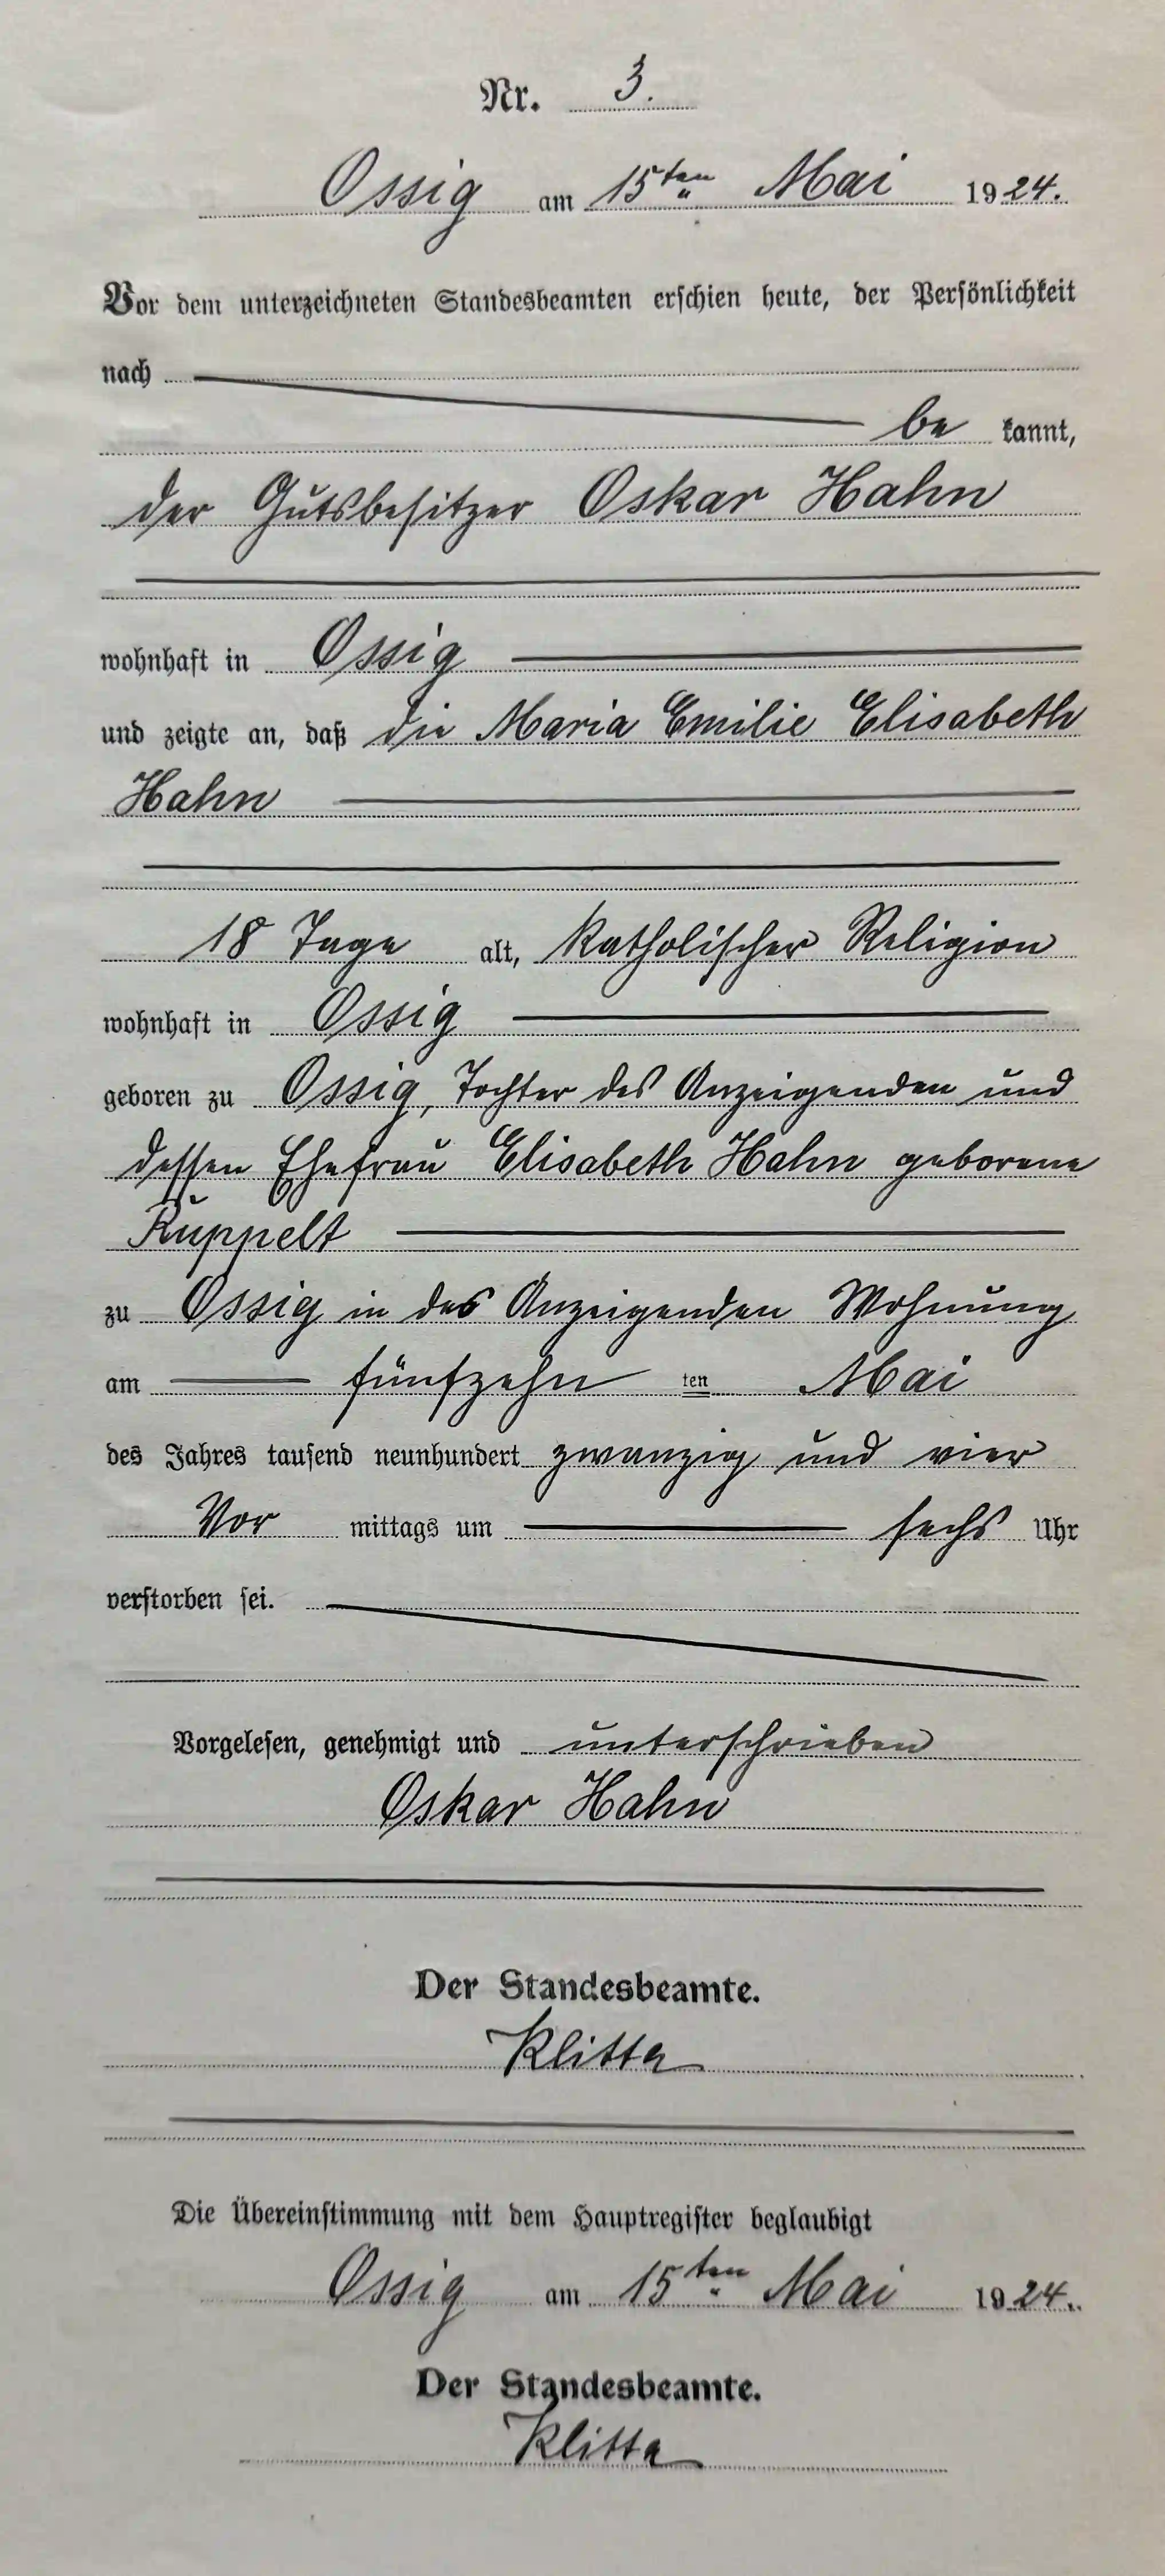 Nr. 3.
Ossig am 15ten Mai 1924.
Vor dem unterzeichneten Standesbeamten erschien heute, der Persönlichkeit
nach
be kannt,
der Gutsbesitzer Oskar Hahn
wohnhaft in Ossig
und zeigte an, daß die Maria Emilie Elisabeth
Hahn
18 Tage alt, katholischer Religion
wohnhaft in Ossig
geboren zu Ossig, Tochter des Anzeigenden und
dessen Ehefrau Elisabeth Hahn geborene
Ruppelt
zu Ossig in des Anzeigenden Wohnung
am fünfzehn ten Mai
des Jahres tausend neunhundert zwanzig und vier
Vor mittags um sechs Uhr
verstorben sei.
Vorgelesen, genehmigt und unterschrieben
Oskar Hahn
Der Standesbeamte.
Klitta
Die Übereinstimmung mit dem Hauptregister beglaubigt
Ossig am 15ten Mai 1924.
Der Standesbeamte.
Klitta